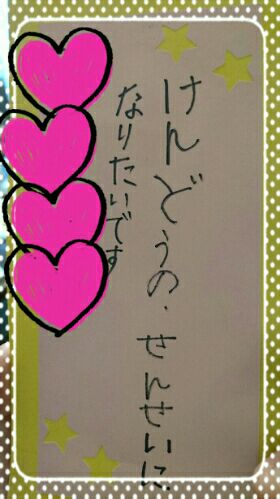 けんどうの、せんせいに
なりたいです